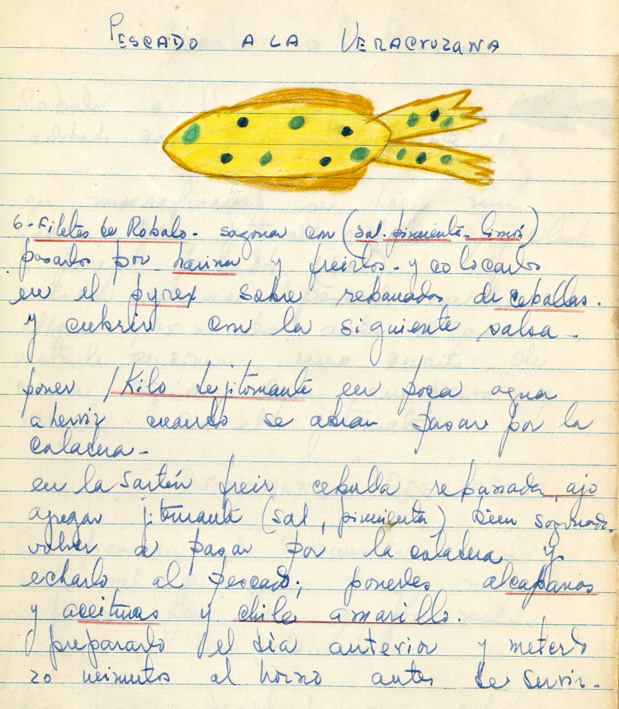 PESCADO A LA VERACRUZANA
6.- Filetes de Robalo. sazonar con (sal. pimienta - limón)
pasarlos por harina y freirlos - y colocarlos
en el pyrex sobre rebanadas de cebollas.
y cubrir con la siguiente salsa.
poner 1 Kilo de jitomante en poca agua
a hervir cuando se abran pasar por la
coladera.-
en la sartén freir cebolla rebanada, ajo
agregar jitomante (sal, pimienta) bien sazonada.
volver a pasar por la coladera y
echarlo al pescado; ponerles alcaparras
y aceitunas y chile amarillo.
prepararlo el dia anterior y meterlo
20 minutos al horno antes de servir.-